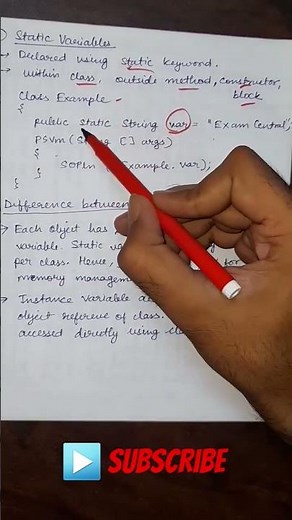 Static Variables
→ Declared using static keyword.
→ within class, outside method, constructor,
block
Class Example
{
public static String var = "Exam Central";
PSVM( [] args)
{
SOPln ( Example. var);
}
}
Difference between
→ Each object has
variable. Static
per class. Hence, for
memory manageme
→ Instance variable
object reference of class.
accessed directly using
SUBSCRIBE